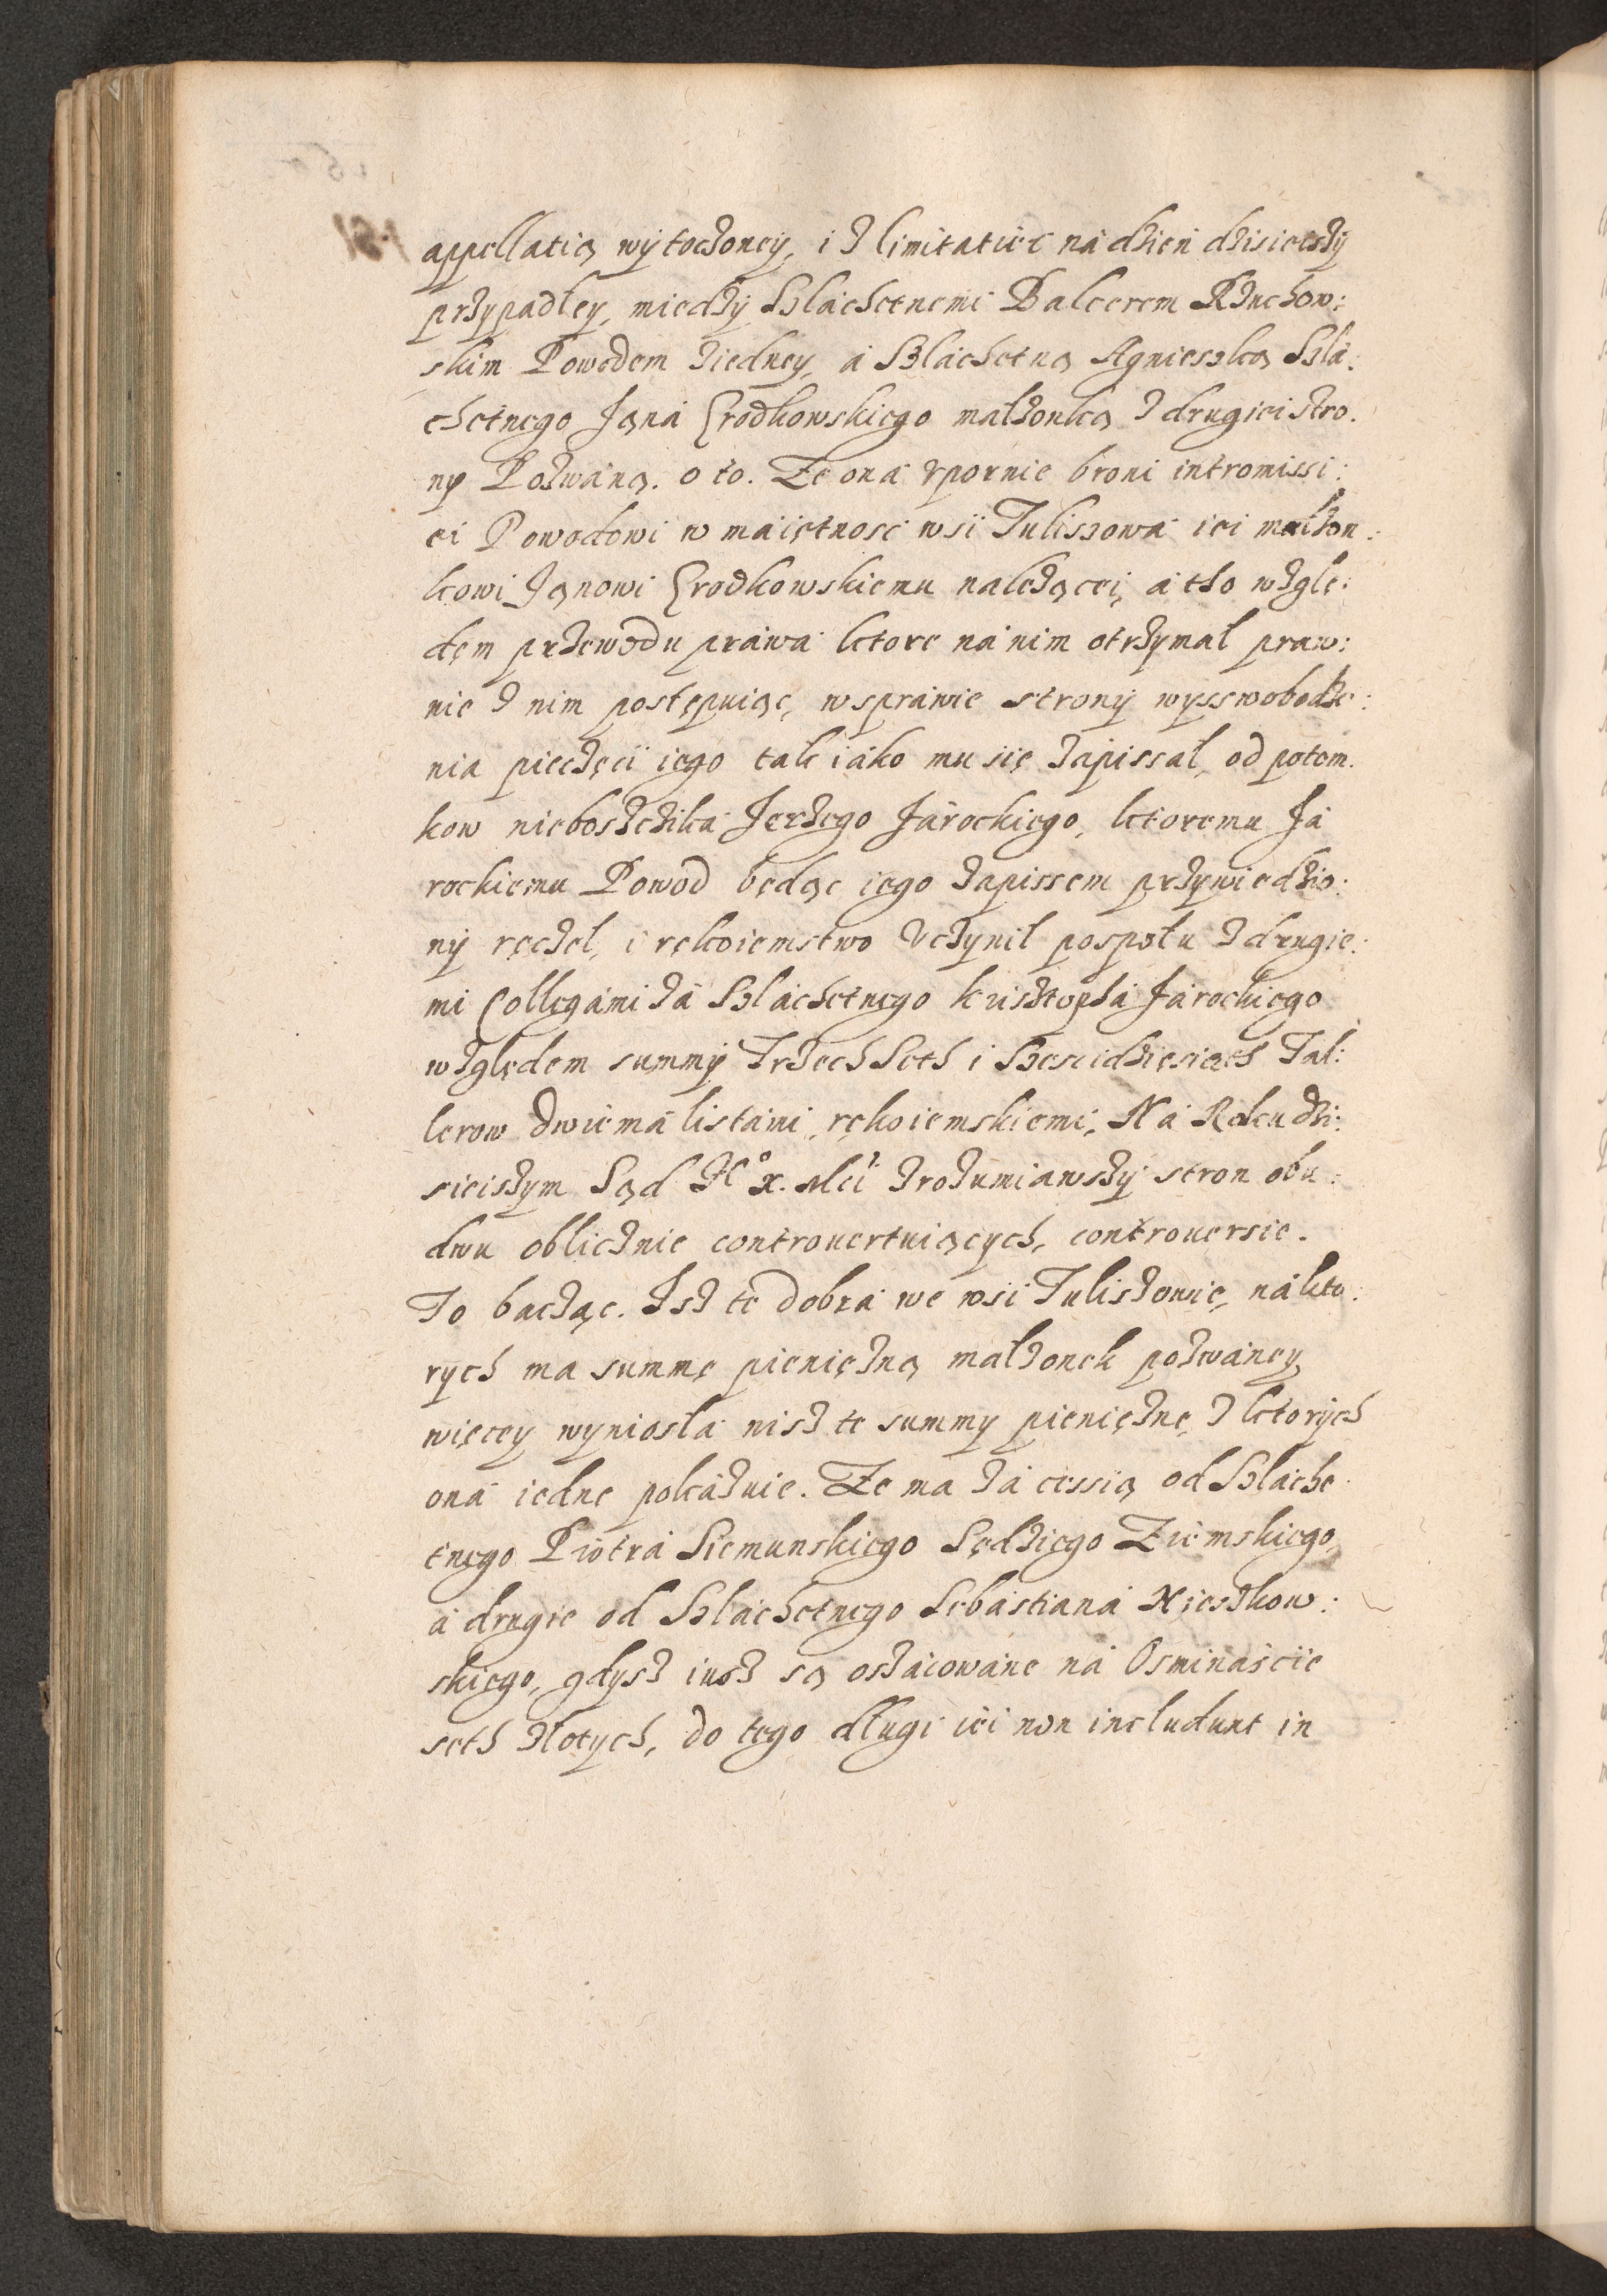 appellatią wytoczoney, i z limitatiiei na dzień dzisieiszy
przypadłey, miedzy Szlachetnemi Balcerem Rzuchow:
skim Powodem ziedney, á Szlachetną Agnieszką Szlá:
chetnego Janá Srodkowskiego małżonką z drugiei stro:
ny Pozwáną. o to. Że oná vpornie broni intromissi:
ei Powodowi w maiętnosc wsi Tuliszowá iei małżon:
kowi Janowi Srodkowskiemu nalezącei, á tho wzglę:
dem przewodu práwá ktore ná nim otrzymał praw:
nie z nim postępuiąc, w spráwie strony wysswobodze:
nia pieczęci iego tak iáko mu się zápissał, od potom:
kow nieboszczika Jerzego Járockiego, ktoremu Já
rockiemu Powod będąc iego zapissem przywiedzio:
ny ręczel, i rękoiemstwo vczynił pospołu z drugie:
mi Collegámi zá Szláchetnego krisztophá Járockiego
względem summy Trzech Seth i Szescidziesiąth Tal:
lerow dwiema listámi rękoiemskiemi, Ná Roku dzi:
sieiszym Sąd Je° x. Mci zrozumiawszy stron obu:
dwu oblicznie controuertuiących, controuersie.
To bacząc. Isz te dobrá we wsi Tuliszowie, ná kto:
rych ma summę pieniężną małzonek pozwáney
więcey wyniosłá nisz te summy pieniężne, z ktorych
oná iedne pokázuie. Że ma zá cessią od Szláche
tnego Piotrá Siemunskiego Sędziego Ziemskiego,
á drugie od Szláchetnego Sebástianá Mieszkow:
skiego, gdysz iusz są oszácowáne ná Osminaście
seth złotych, do tego długi iei non includunt in